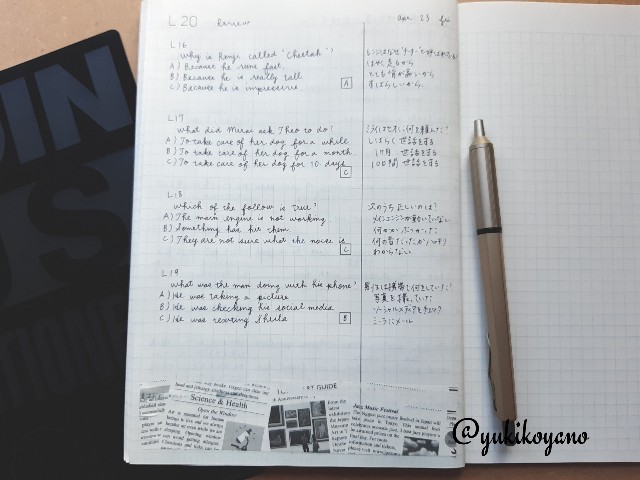 L20 Review Apr 23 fri
L16
Why is Renji called 'Cheetah'?
A) Because he runs fast.
B) Because he is really tall
C) Because he is impressive
A
レンジはなぜ"チーター"と呼ばれている
はやく走るから
とても背が高いから
すばらしいから。
L17
What did Mirai ask Theo to do?
A) To take care of her dog for a while
B) To take care of her dog for a month
C) To take care of her dog for 10 days
C
ミライはセオに何を頼んだ?
しばらく世話をする
1ヶ月 世話をする
10日間 世話をする
L18
which of the follow is true?
A) The main engine is not working
B) Something has hit them.
C) They are not sure what the noise is
C
次のうち正しいのは?
メインエンジンが動いていない
何かがぶつかった
何の音だったかハッキリ
わからない
L19
What was the man doing with his phone?
A) He was taking a picture
B) He was checking his social media
C) He was texting Sheila
B
男性は携帯で何をしていた?
写真を撮っていた
ソーシャルメディアをチェック
シーラにメール
Science & Health
Open the Window
GUIDE
Jazz Music Festival
@yukikoyano